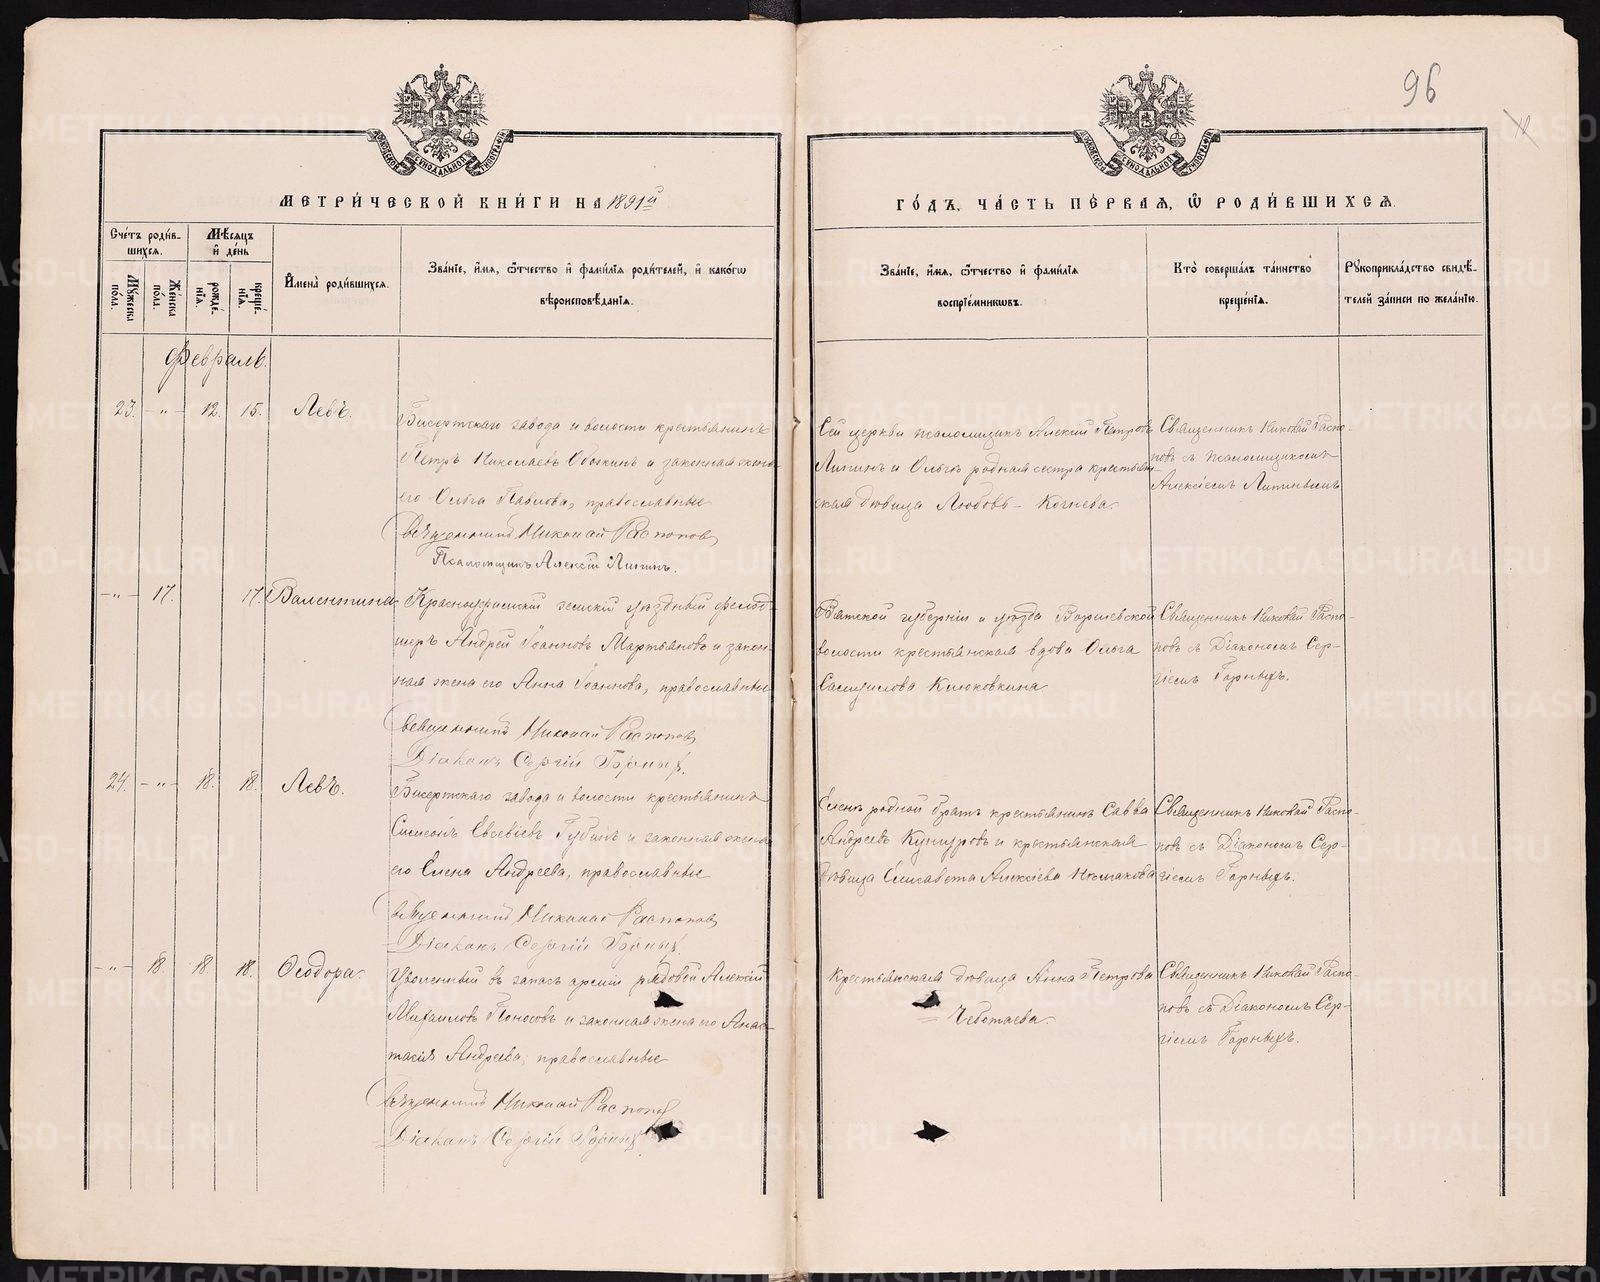 96
МЕТРИ́ЧЕСКОЙ КНИ́ГИ НА 1891й
ГО́ДЪ, ЧА́СТЬ ПЕ́РВАЯ, Ѿ РОДИ́ВШИХСЯ.
Сче́тъ роди́в-
шихся.
Мѣсяцъ
и҆ де́нь
Му́жеска
по́ла.
Же́нска
по́ла.
рожде́-
нїя.
креще́-
нїя.
И҆мена̀ роди́вшихся.
Зва́нїе, и҆́мя, ѻ҆́тчество и҆ фами́лїя роди́телей, и҆ како́гѡ
вѣроисповѣ́данїя.
Зва́нїе, и҆́мя, ѻ҆́тчество и҆ фами́лїя
воспрїе́мникѡвъ.
Кто̀ соверша́лъ та́инство
креще́нїя.
Рꙋкоприкла́дство свидѣ́-
телей за́писи по жела́нїю.
Февраль.
23. -"- 12. 15. Левъ.
Бисертскаго завода и волости крестьянинъ
Петръ Николаевъ Обоскинъ и законная жена
его Ольга Павлова, православные
Священникъ Николай Распоповъ
Псаломщикъ Алексій Липинъ.
Сей церкви псаломщикъ Алексій Петровъ
Липинъ и Ольги родная сестра крестьян-
ская дѣвица Любовь Кочнева.
Священникъ Николай Распо-
повъ съ псаломщикомъ
Алексіемъ Липинымъ
-"- 17. 17. Валентина.
Красноуфимскій земскій уѣздный фельд-
шеръ Андрей Іоанновъ Мартьяновъ и закон-
ная жена его Анна Іоаннова, православные
Священникъ Николай Распоповъ
Діаконъ Сергій Горныхъ.
Вятской губерніи и уѣзда
волости крестьянская вдова Ольга
Самуилова Клюковкина.
Священникъ Николай Распо-
повъ съ Діакономъ Сер-
гіемъ Горныхъ.
24. -"- 18. 18. Левъ.
Бисертскаго завода и волости крестьянинъ
Симеонъ Евсевіевъ Губинъ и законная жена
его Елена Андреева, православные
Священникъ Николай Распоповъ
Діаконъ Сергій Горныхъ
Елены родной братъ крестьянинъ Савва
Андреевъ Кунгуровъ и крестьянская
дѣвица Елисавета Алексіева
Священникъ Николай Распо-
повъ съ Діакономъ Сер-
гіемъ Горныхъ.
-"- 18. 18 18. Ѳеодора.
Уволенный въ запасъ арміи рядовой Алексій
Михаиловъ Поносовъ и законная жена его Анас-
тасія Андреева, православные
Священникъ Николай Распоповъ
Діаконъ Сергій Горныхъ.
Крестьянская дѣвица Анна Петрова
Чеботаева.
Священникъ Николай Распо-
повъ съ Діакономъ Сер-
гіемъ Горныхъ.
METRIKI.GASO-URAL.RU